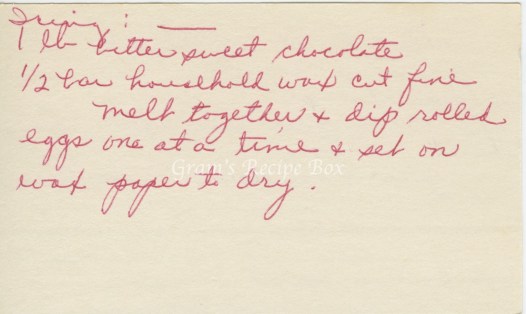 Icing:
1 lb bitter sweet chocolate
1/2 bar household wax cut fine
melt together & dip rolled
eggs one at a time & set on
Gram's Recipe Box
wax paper to dry.